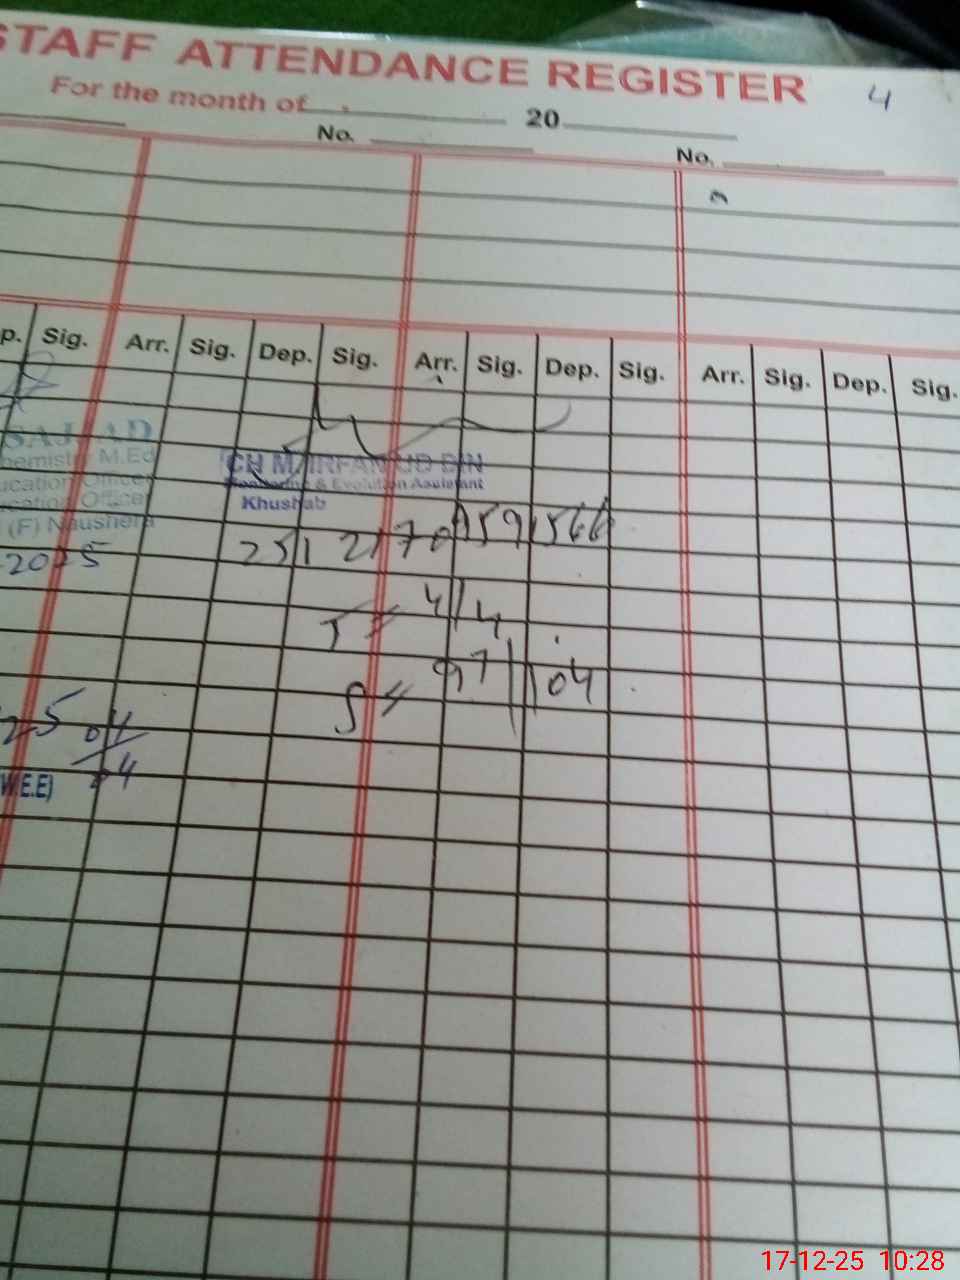 STAFF ATTENDANCE REGISTER
4
For the month of 20
No. No.
p. Sig. Arr. Sig. Dep. Sig. Arr. Sig. Dep. Sig. Arr. Sig. Dep. Sig.
SAJJAD
hemistry M.Ed
ucation Officer
ucation Officer
(F) Naushera
2025
CH M. IRFAN UD DIN
Monitoring & Evolution Assistant
Khushab
T = 4/4
97 104
25 04
04
(W.E.E)
17-12-25 10:28